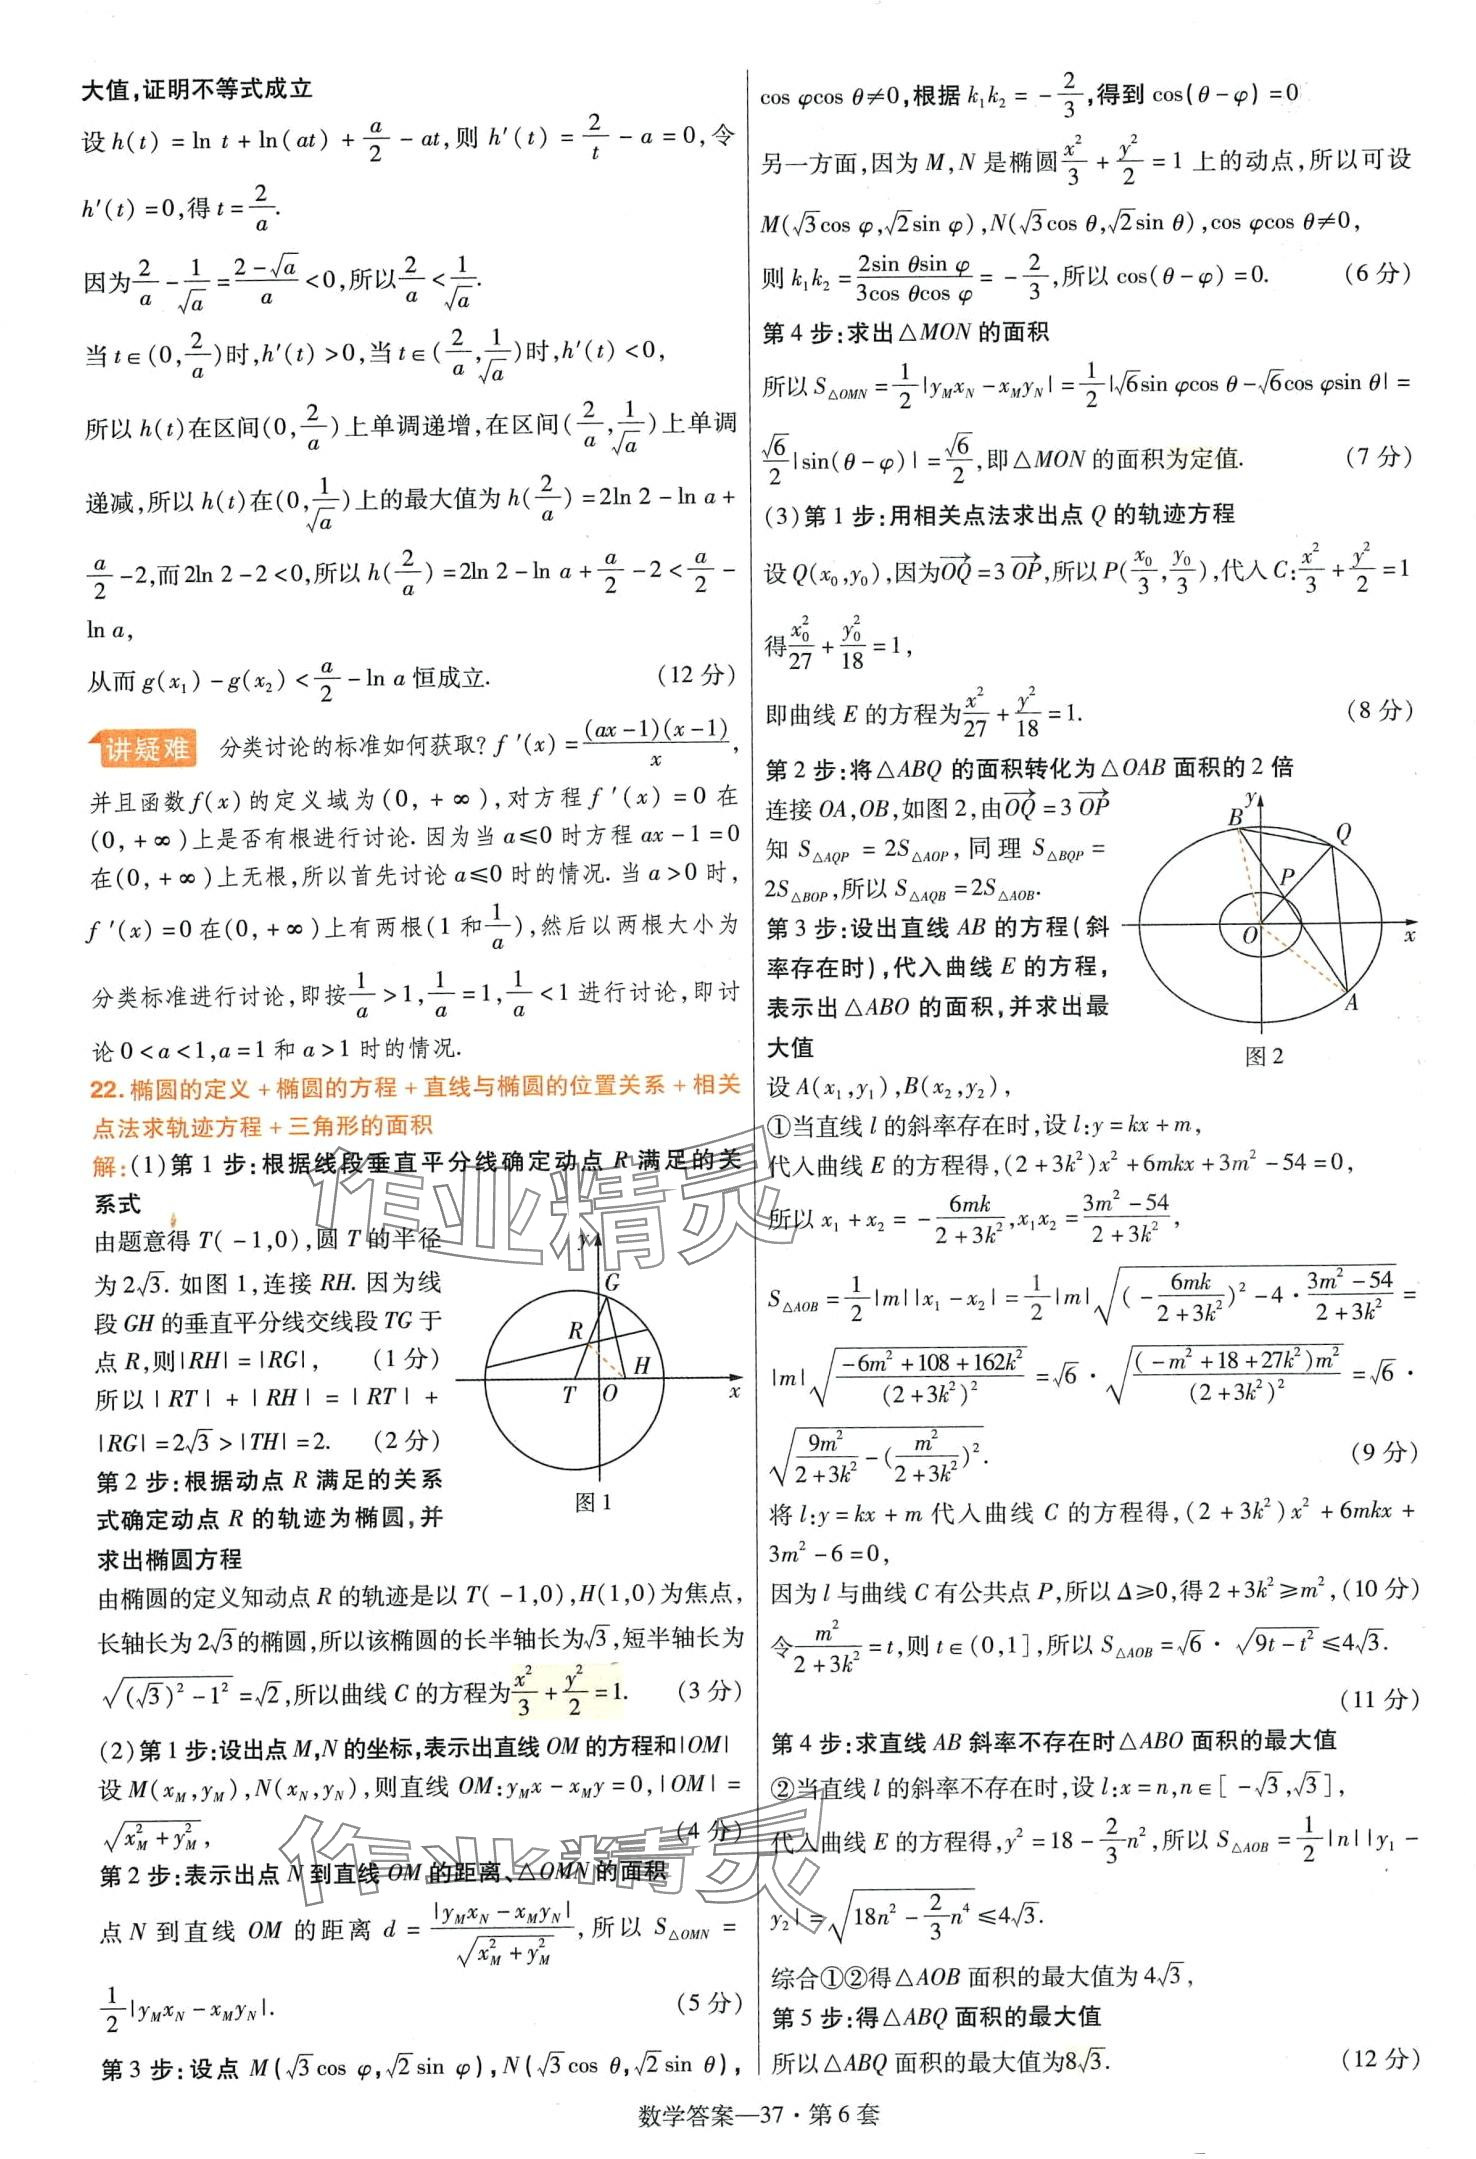 大值,证明不等式成立
设h(t)=ln t+ln(at)+a/2-at,则h′(t)=2/t-a=0,令
h′(t)=0,得t=2/a.
因为2/a-1/√a=(2-√a)/a<0,所以2/a<1/√a.
当t∈(0,2/a)时,h′(t)>0,当t∈(2/a,1/√a)时,h′(t)<0,
所以h(t)在区间(0,2/a)上单调递增,在区间(2/a,1/√a)上单调
递减,所以h(t)在(0,1/√a)上的最大值为h(2/a)=2ln 2-ln a+
a/2-2,而2ln 2-2<0,所以h(2/a)=2ln 2-ln a+a/2-2<a/2-
ln a,
从而g(x₁)-g(x₂)<a/2-ln a恒成立. (12分)
讲疑难 分类讨论的标准如何获取?f′(x)=(ax-1)(x-1)/x,
并且函数f(x)的定义域为(0,+∞),对方程f′(x)=0在
(0,+∞)上是否有根进行讨论.因为当a≤0时方程ax-1=0
在(0,+∞)上无根,所以首先讨论a≤0时的情况.当a>0时,
f′(x)=0在(0,+∞)上有两根(1和1/a),然后以两根大小为
分类标准进行讨论,即按1/a>1,1/a=1,1/a<1进行讨论,即讨
论0<a<1,a=1和a>1时的情况.
22.椭圆的定义+椭圆的方程+直线与椭圆的位置关系+相关
点法求轨迹方程+三角形的面积
解:(1)第1步:根据线段垂直平分线确定动点R满足的关
系式
由题意得T(-1,0),圆T的半径
为2√3.如图1,连接RH.因为线
段GH的垂直平分线交线段TG于
点R,则|RH|=|RG|, (1分)
所以|RT|+|RH|=|RT|+
|RG|=2√3>|TH|=2. (2分)
第2步:根据动点R满足的关系
式确定动点R的轨迹为椭圆,并
求出椭圆方程
y
G
R
H
T
O
x
图1
由椭圆的定义知动点R的轨迹是以T(-1,0),H(1,0)为焦点,
长轴长为2√3的椭圆,所以该椭圆的长半轴长为√3,短半轴长为
√((√3)²-1²)=√2,所以曲线C的方程为x²/3+y²/2=1. (3分)
(2)第1步:设出点M,N的坐标,表示出直线OM的方程和|OM|
设M(x_M,y_M),N(x_N,y_N),则直线OM:y_Mx-x_My=0,|OM|=
√(x_M²+y_M²), (4分)
第2步:表示出点N到直线OM的距离、△OMN的面积
点N到直线OM的距离d=|y_Mx_N-x_My_N|/√(x_M²+y_M²),所以S△OMN=
1/2|y_Mx_N-x_My_N|. (5分)
第3步:设点M(√3cos φ,√2sin φ),N(√3cos θ,√2sin θ),
cos φcos θ≠0,根据k₁k₂=-2/3,得到cos(θ-φ)=0
另一方面,因为M,N是椭圆x²/3+y²/2=1上的动点,所以可设
M(√3cos φ,√2sin φ),N(√3cos θ,√2sin θ),cos φcos θ≠0,
则k₁k₂=2sin θsin φ/3cos θcos φ=-2/3,所以cos(θ-φ)=0. (6分)
第4步:求出△MON的面积
所以S△OMN=1/2|y_Mx_N-x_My_N|=1/2|√6sin φcos θ-√6cos φsin θ|=
√6/2|sin(θ-φ)|=√6/2,即△MON的面积为定值. (7分)
(3)第1步:用相关点法求出点Q的轨迹方程
设Q(x₀,y₀),因为OQ→=3OP→,所以P(x₀/3,y₀/3),代入C:x²/3+y²/2=1
得x₀²/27+y₀²/18=1,
即曲线E的方程为x²/27+y²/18=1. (8分)
第2步:将△ABQ的面积转化为△OAB面积的2倍
连接OA,OB,如图2,由OQ→=3OP→
知S△AQP=2S△AOP,同理S△BQP=
2S△BOP,所以S△AQB=2S△AOB.
第3步:设出直线AB的方程(斜
率存在时),代入曲线E的方程,
表示出△ABO的面积,并求出最
大值
y
B
Q
P
O
x
A
图2
设A(x₁,y₁),B(x₂,y₂),
①当直线l的斜率存在时,设l:y=kx+m,
代入曲线E的方程得,(2+3k²)x²+6mkx+3m²-54=0,
所以x₁+x₂=-6mk/(2+3k²),x₁x₂=(3m²-54)/(2+3k²),
S△AOB=1/2|m||x₁-x₂|=1/2|m|√((-6mk/(2+3k²))²-4·(3m²-54)/(2+3k²))=
|m|√((-6m²+108+162k²)/(2+3k²)²)=√6·√((-m²+18+27k²)m²/(2+3k²)²)=√6·
√(9m²/(2+3k²)-(m²/(2+3k²))²). (9分)
将l:y=kx+m代入曲线C的方程得,(2+3k²)x²+6mkx+
3m²-6=0,
因为l与曲线C有公共点P,所以Δ≥0,得2+3k²≥m²,(10分)
令m²/(2+3k²)=t,则t∈(0,1],所以S△AOB=√6·√(9t-t²)≤4√3.
(11分)
第4步:求直线AB斜率不存在时△ABO面积的最大值
②当直线l的斜率不存在时,设l:x=n,n∈[-√3,√3],
代入曲线E的方程得,y²=18-2/3n²,所以S△AOB=1/2|n||y₁-
y₂|=√(18n²-2/3n⁴)≤4√3.
综合①②得△AOB面积的最大值为4√3,
第5步:得△ABQ面积的最大值
所以△ABQ面积的最大值为8√3. (12分)
数学答案—37·第6套
作业精灵
作业精灵